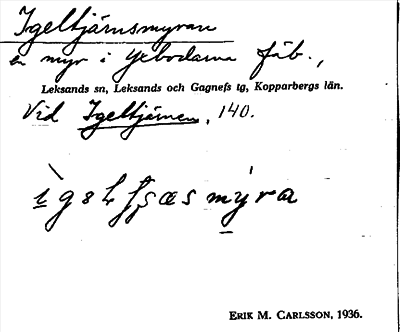 Igeltjärnsmyran
en myr i Yxbodarna fäb.,
Leksands sn, Leksands och Gagnefs tg, Kopparbergs län.
Vid Igeltjärnen, 140.
ERIK M. CARLSSON, 1936.